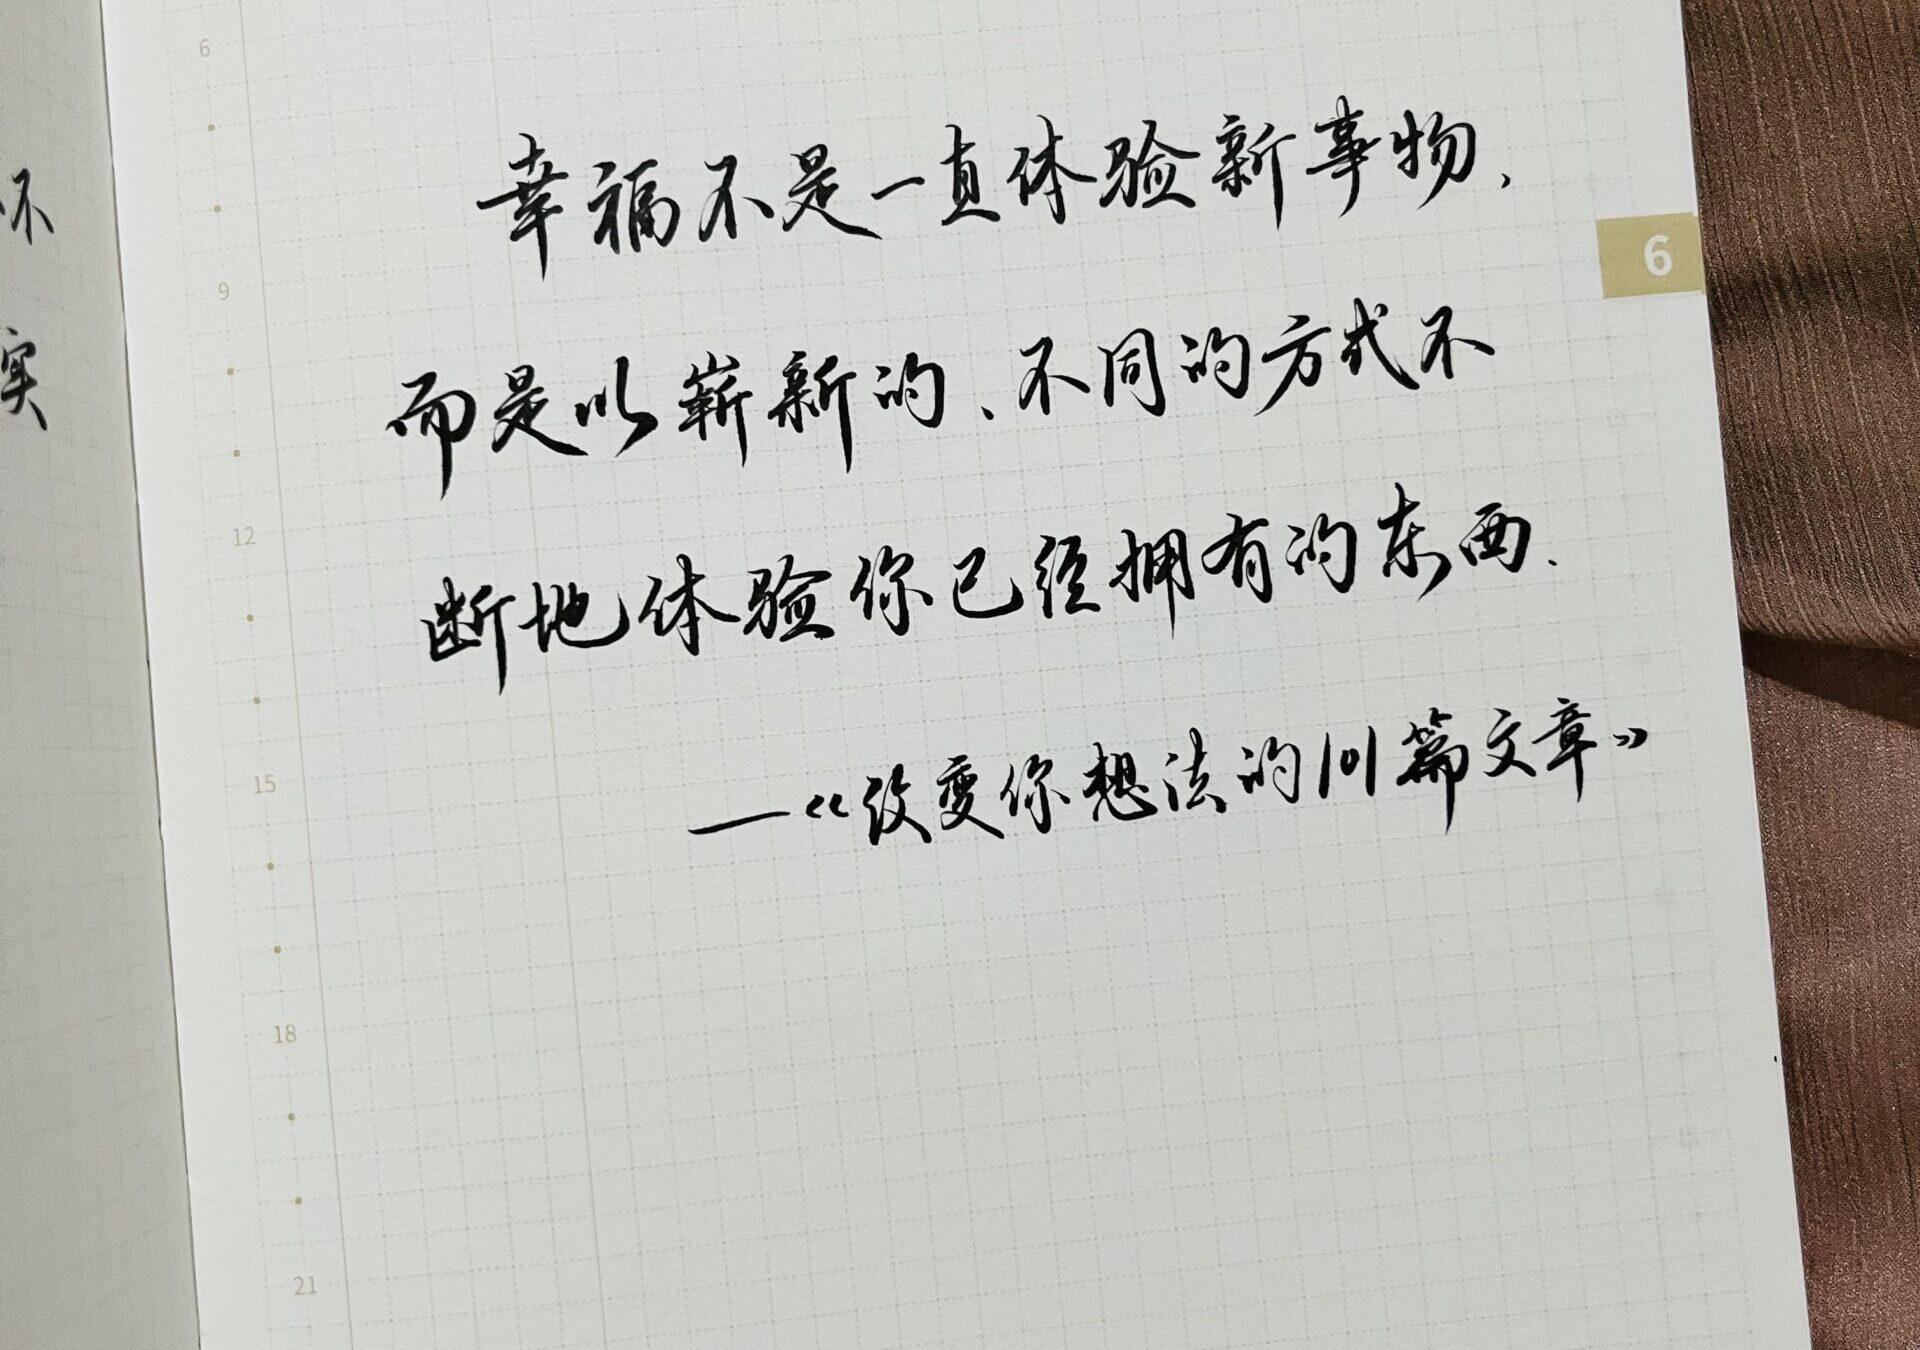 不
实
6
9
12
15
18
21
6
幸福不是一直体验新事物,
而是以崭新的、不同的方式不
断地体验你已经拥有的东西.
——《改变你想法的101篇文章》